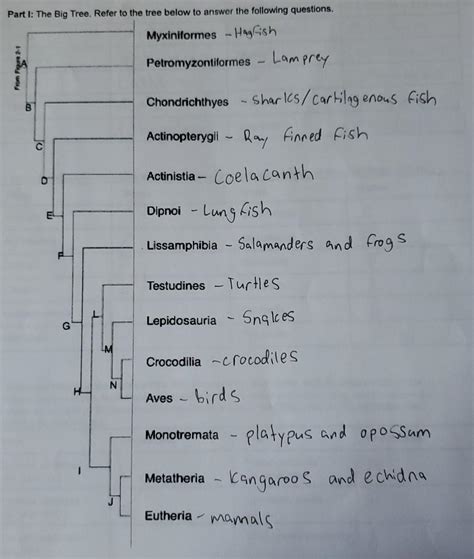 Part I: The Big Tree. Refer to the tree below to answer the following questions.
From Figure 2-1
Myxiniformes - Hagfish
A
Petromyzontiformes - Lamprey
B
Chondrichthyes - sharks/cartilagenous fish
C
Actinopterygii - Ray finned fish
D
Actinistia - Coelacanth
E
Dipnoi - Lungfish
F
Lissamphibia - Salamanders and frogs
Testudines - Turtles
L
G
Lepidosauria - Snakes
M
Crocodilia - crocodiles
N
H
Aves - birds
Monotremata - platypus and opossum
I
Metatheria - Kangaroos and echidna
J
Eutheria - mamals